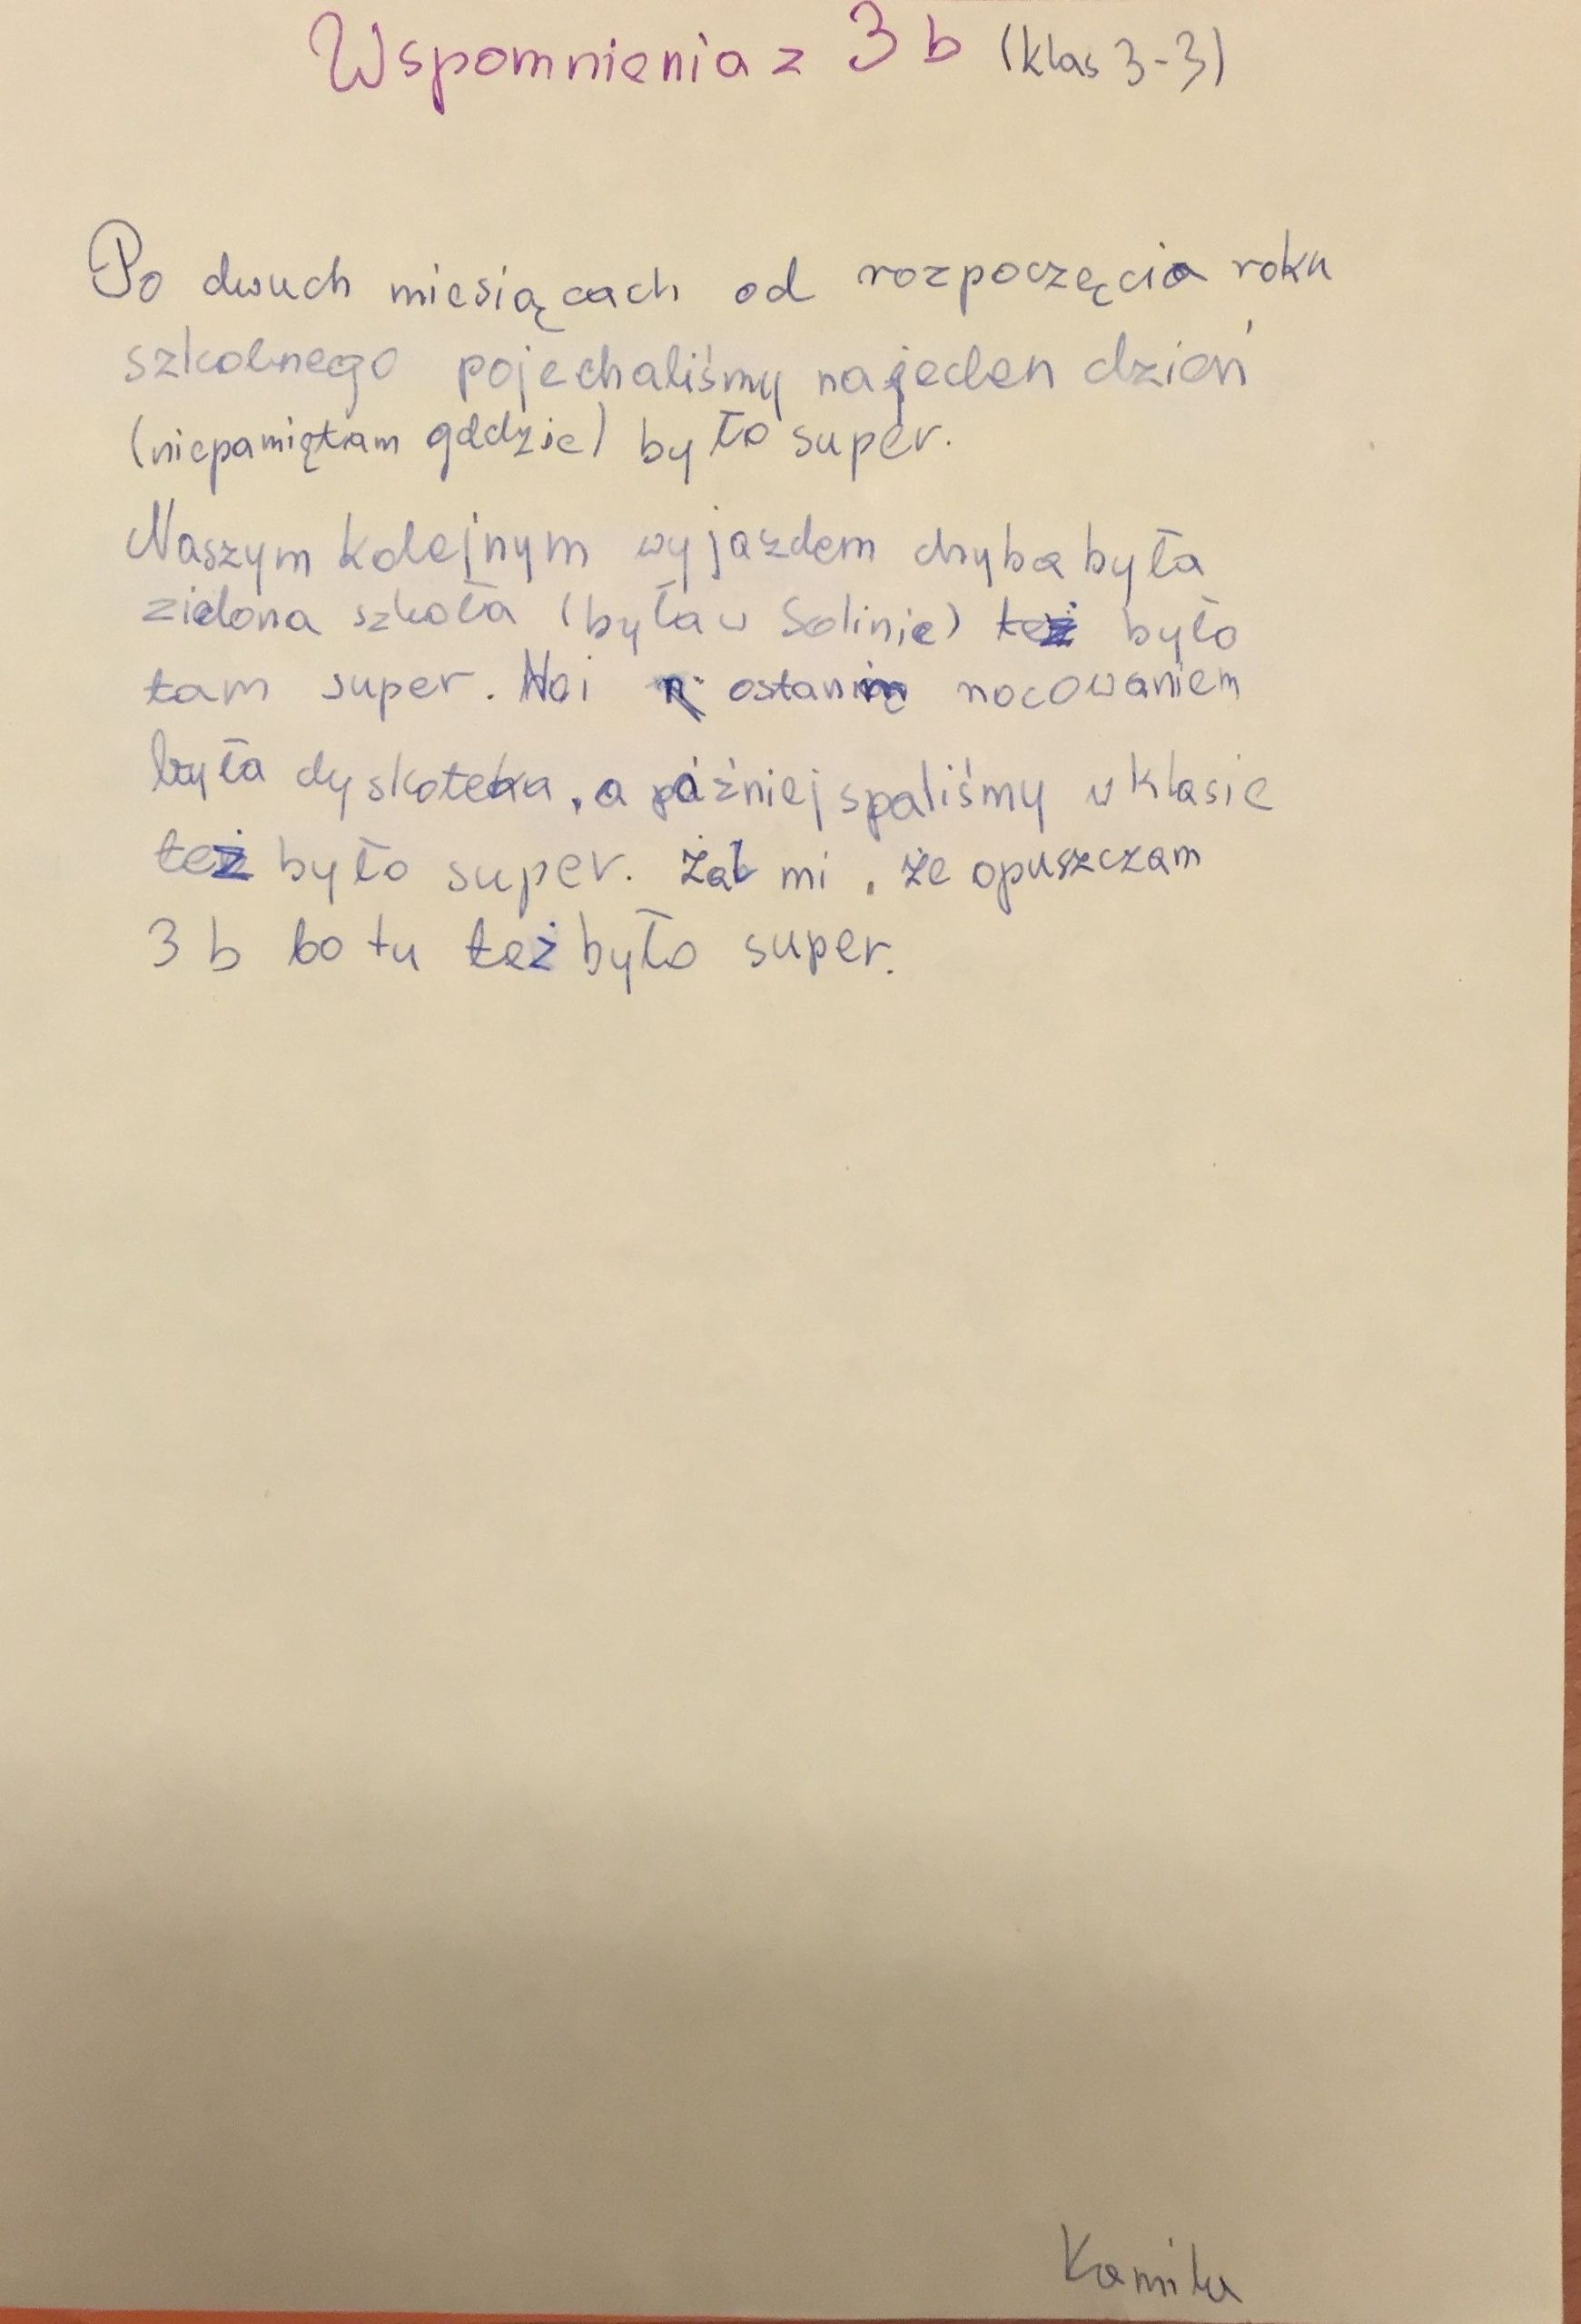 Wspomnienia z 3 b (klas 3-3)
Po dwuch miesiącach od rozpoczęcia roku
szkolnego pojechaliśmy na jeden dzień
(niepamiętam gddzie) było super.
Naszym kolejnym wyjazdem chyba była
zielona szkoła (była w Solinie) też było
tam super. No i nocowaniem
była dyskoteka, a później spaliśmy w klasie
też było super. Żal mi, że opuszczam
3 b bo tu też było super.
Kamila